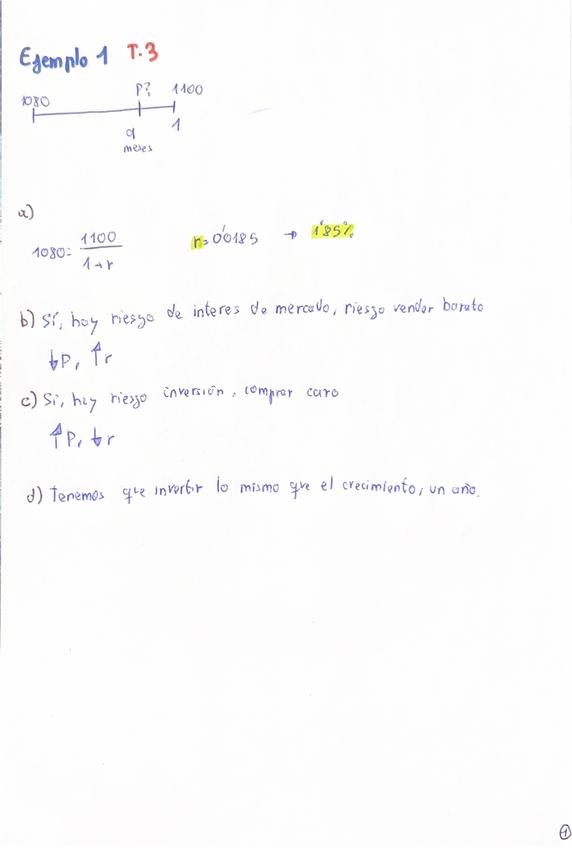 Ejemplo 1 T.3
1080 P? 1100
9 1
meses
a)
1080 = 1100 / 1+r r = 0'0185 → 1'85%
b) Sí, hay riesgo de interes de mercado, riesgo vender barato
↓P, ↑r
c) Si, hay riesgo inversión, comprar caro
↑P, ↓r
d) Tenemos que invertir lo mismo que el crecimiento, un año.
1